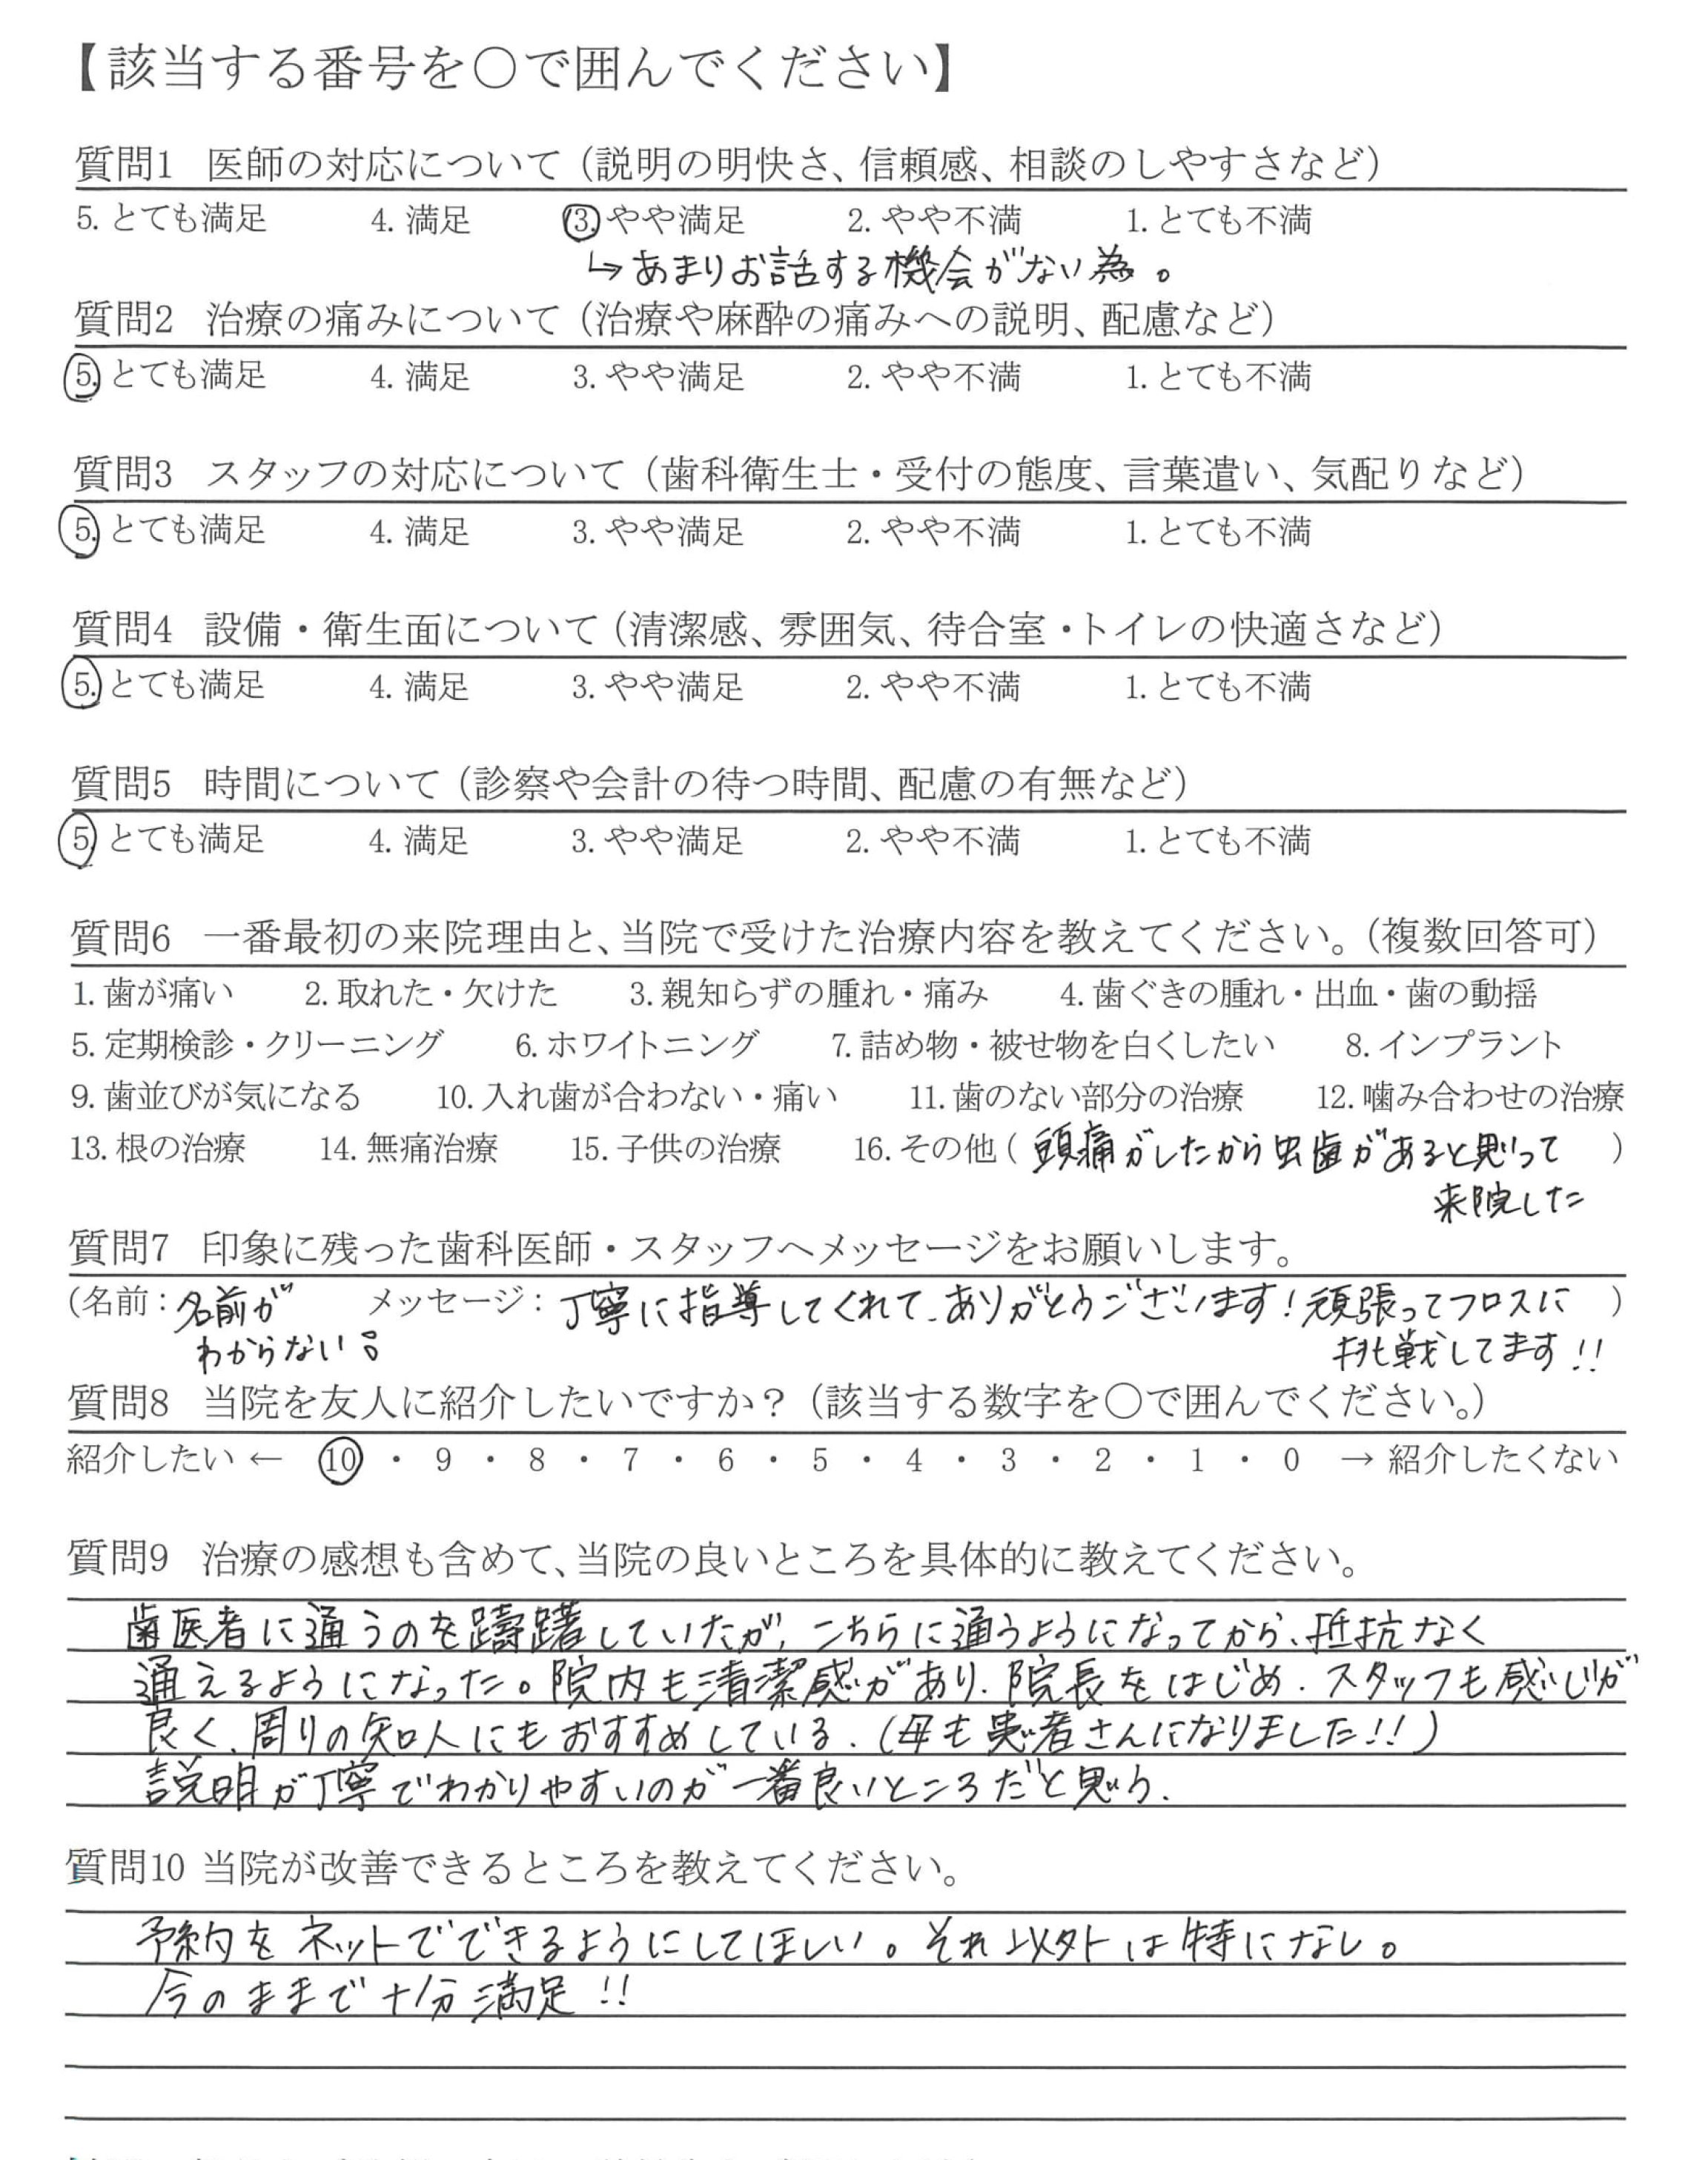 【該当する番号を〇で囲んでください】
質問1 医師の対応について（説明の明快さ、信頼感、相談のしやすさなど）
5. とても満足 4. 満足 3. やや満足 2. やや不満 1. とても不満
↳ あまりお話する機会がない為。
質問2 治療の痛みについて（治療や麻酔の痛みへの説明、配慮など）
5. とても満足 4. 満足 3. やや満足 2. やや不満 1. とても不満
質問3 スタッフの対応について（歯科衛生士・受付の態度、言葉遣い、気配りなど）
5. とても満足 4. 満足 3. やや満足 2. やや不満 1. とても不満
質問4 設備・衛生面について（清潔感、雰囲気、待合室・トイレの快適さなど）
5. とても満足 4. 満足 3. やや満足 2. やや不満 1. とても不満
質問5 時間について（診察や会計の待つ時間、配慮の有無など）
5. とても満足 4. 満足 3. やや満足 2. やや不満 1. とても不満
質問6 一番最初の来院理由と、当院で受けた治療内容を教えてください。（複数回答可）
1. 歯が痛い 2. 取れた・欠けた 3. 親知らずの腫れ・痛み 4. 歯ぐきの腫れ・出血・歯の動揺
5. 定期検診・クリーニング 6. ホワイトニング 7. 詰め物・被せ物を白くしたい 8. インプラント
9. 歯並びが気になる 10. 入れ歯が合わない・痛い 11. 歯のない部分の治療 12. 噛み合わせの治療
13. 根の治療 14. 無痛治療 15. 子供の治療 16. その他（頭痛がしたから虫歯があると思って）
来院した
質問7 印象に残った歯科医師・スタッフへメッセージをお願いします。
（名前：名前が メッセージ：丁寧に指導してくれて、ありがとうございます！頑張ってフロスに）
わからない。 挑戦してます!!
質問8 当院を友人に紹介したいですか？（該当する数字を〇で囲んでください。）
紹介したい ← 10 ・ 9 ・ 8 ・ 7 ・ 6 ・ 5 ・ 4 ・ 3 ・ 2 ・ 1 ・ 0 → 紹介したくない
質問9 治療の感想も含めて、当院の良いところを具体的に教えてください。
歯医者に通うのを躊躇していたが、こちらに通うようになってから、抵抗なく
通えるようになった。院内も清潔感があり、院長をはじめ、スタッフも感じが
良く、周りの知人にもおすすめしている。（母も患者さんになりました!!）
説明が丁寧でわかりやすいのが一番良いところだと思う。
質問10 当院が改善できるところを教えてください。
予約をネットでできるようにしてほしい。それ以外は特になし。
今のままで十分満足!!